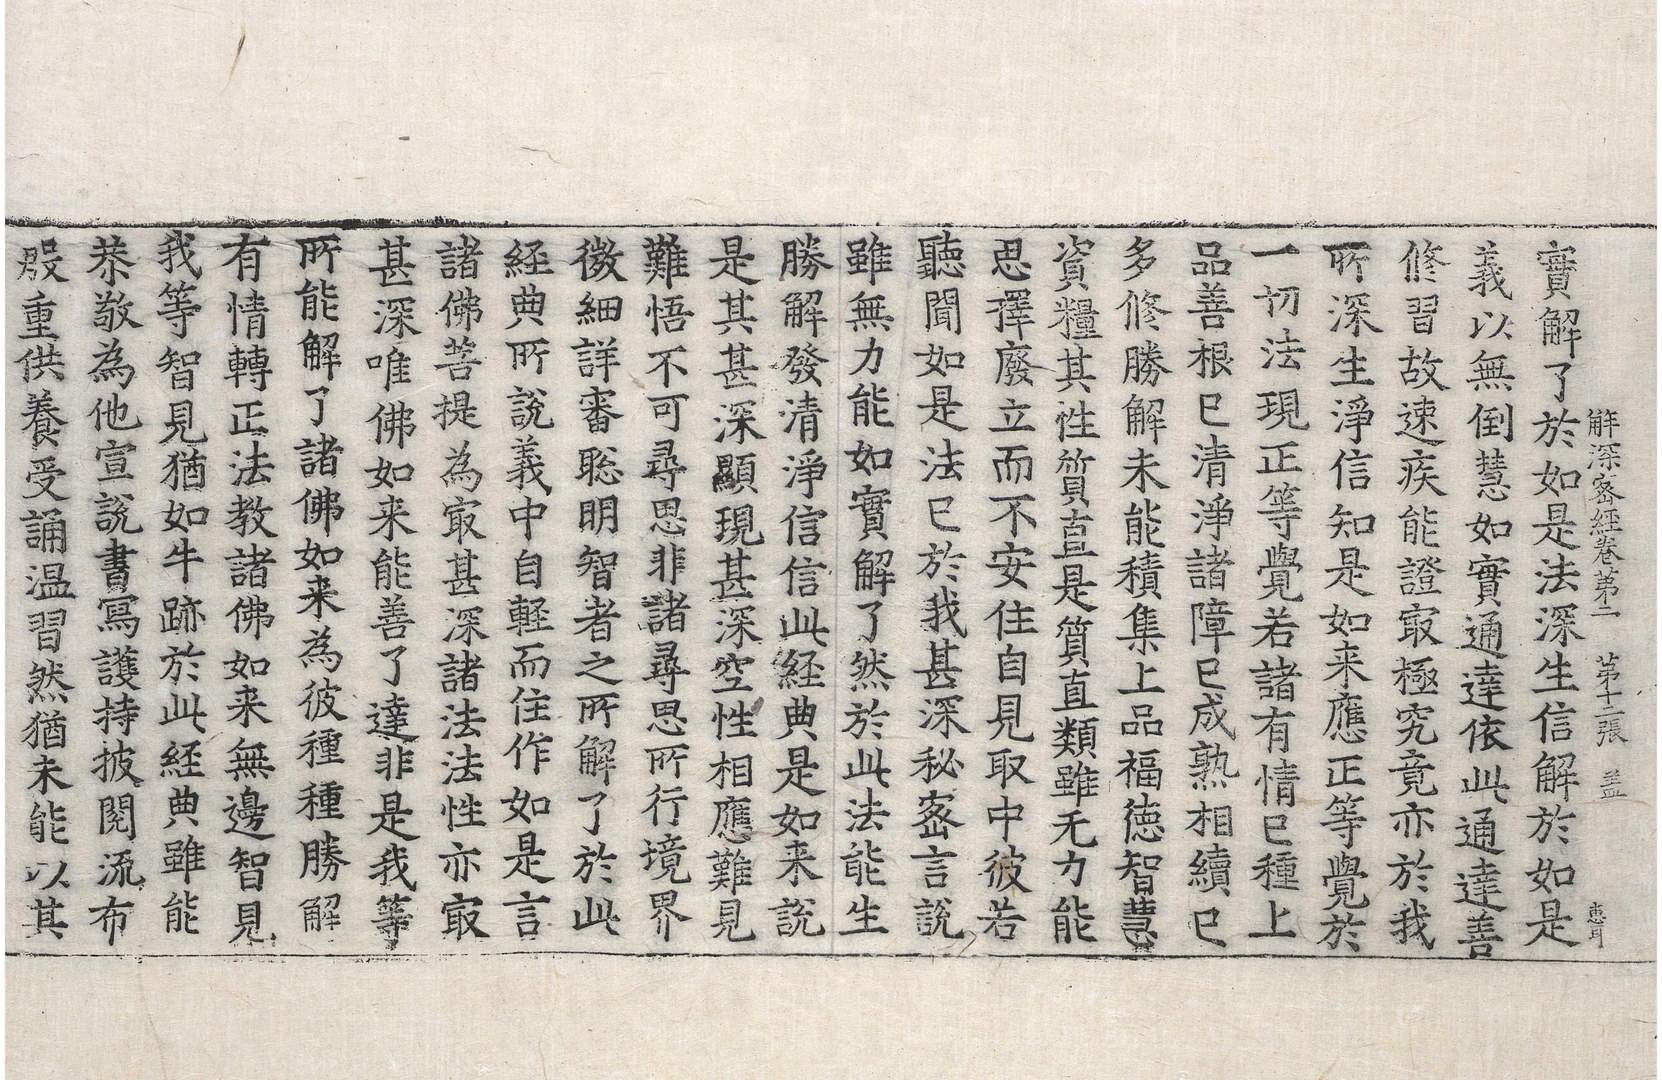 解深密經卷第二 第十二張 盖 惠耳
實解了於如是法深生信解於如是
義以無倒慧如實通達依此通達善
修習故速疾能證㝡極究竟亦於我
所深生淨信知是如来應正等覺於
一切法現正等覺若諸有情已種上
品善根已清淨諸障已成熟相續已
多修勝解未能積集上品福德智慧
資糧其性質直是質直類雖无力能
思擇廢立而不安住自見取中彼若
聽聞如是法已於我甚深秘密言說
雖無力能如實解了然於此法能生
勝解發清淨信信此経典是如来說
是其甚深顯現甚深空性相應難見
難悟不可尋思非諸尋思所行境界
微細詳審聡明智者之所解了於此
経典所說義中自軽而住作如是言
諸佛菩提為㝡甚深諸法法性亦㝡
甚深唯佛如来能善了達非是我等
所能解了諸佛如来為彼種種勝解
有情轉正法教諸佛如来無邊智見
我等智見猶如牛跡於此経典雖能
恭敬為他宣說書寫護持披閱流布
殷重供養受誦温習然猶未能以其